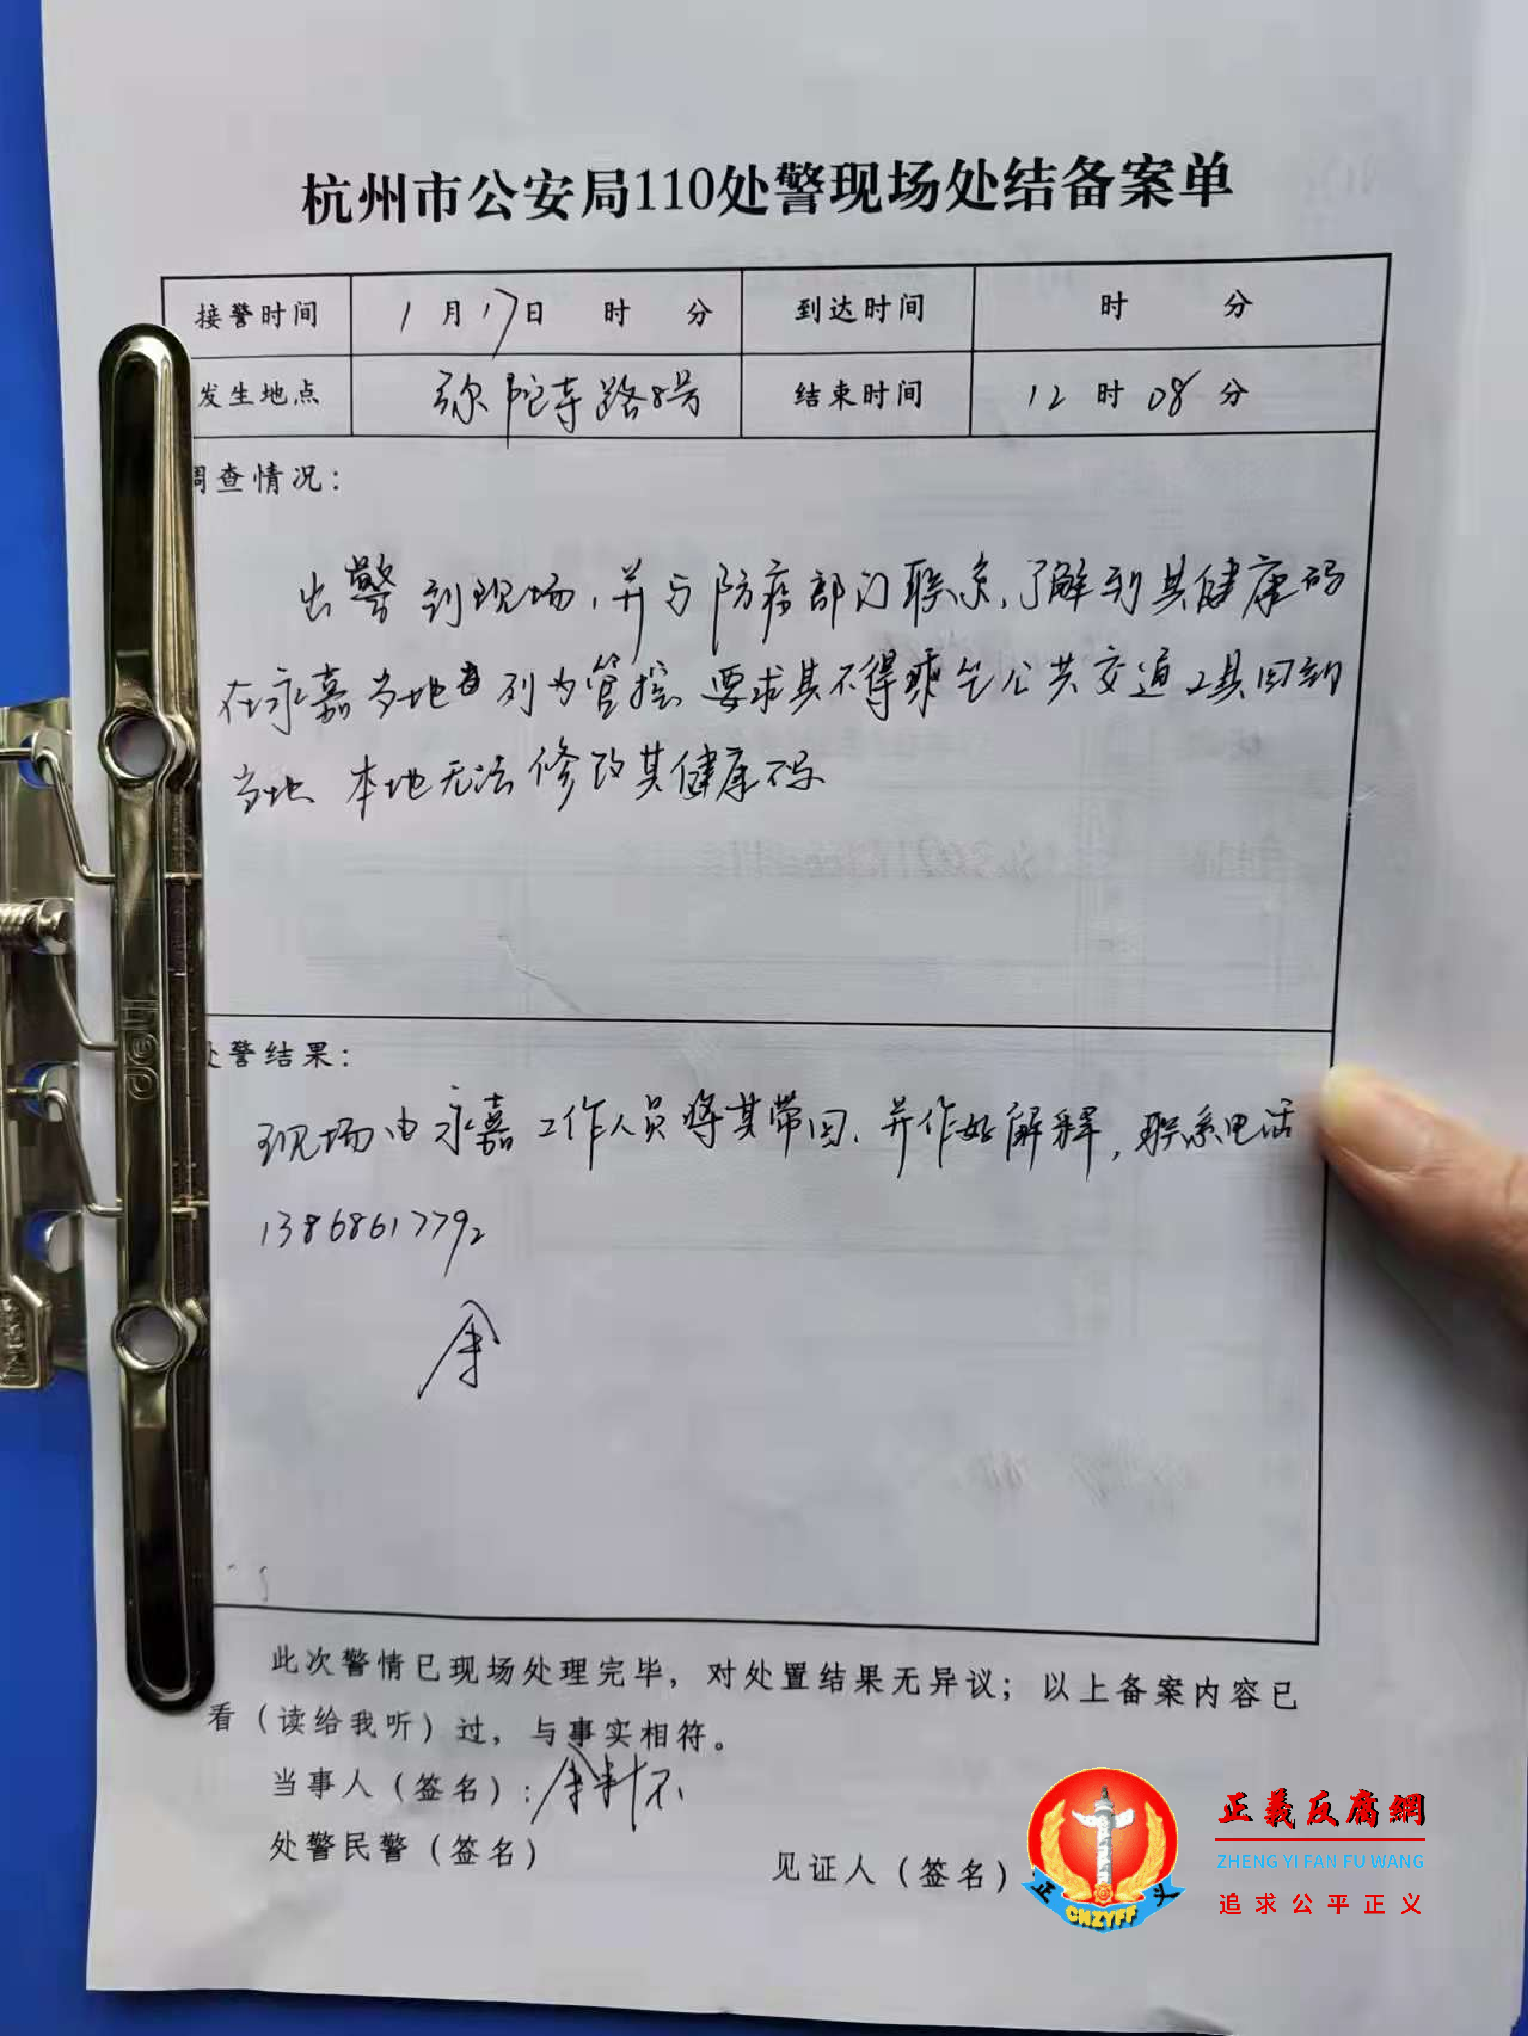 杭州市公安局110处警现场处结备案单
接警时间 1月17日 时 分 到达时间 时 分
发生地点 弥陀寺路8号 结束时间 12时08分
调查情况：
出警到现场，并与防疫部门联系，了解到其健康码
在永嘉当地 列为管控 要求其不得乘坐公共交通工具回到
当地 本地无法修改其健康码
处警结果：
现场由永嘉工作人员将其带回，并作好解释，联系电话
13868617792
余
此次警情已现场处理完毕，对处置结果无异议；以上备案内容已
看（读给我听）过，与事实相符。
当事人（签名）：余
处警民警（签名）
见证人（签名）：
deli
正義反腐網
ZHENG YI FAN FU WANG
追求公平正义
CNZYFF